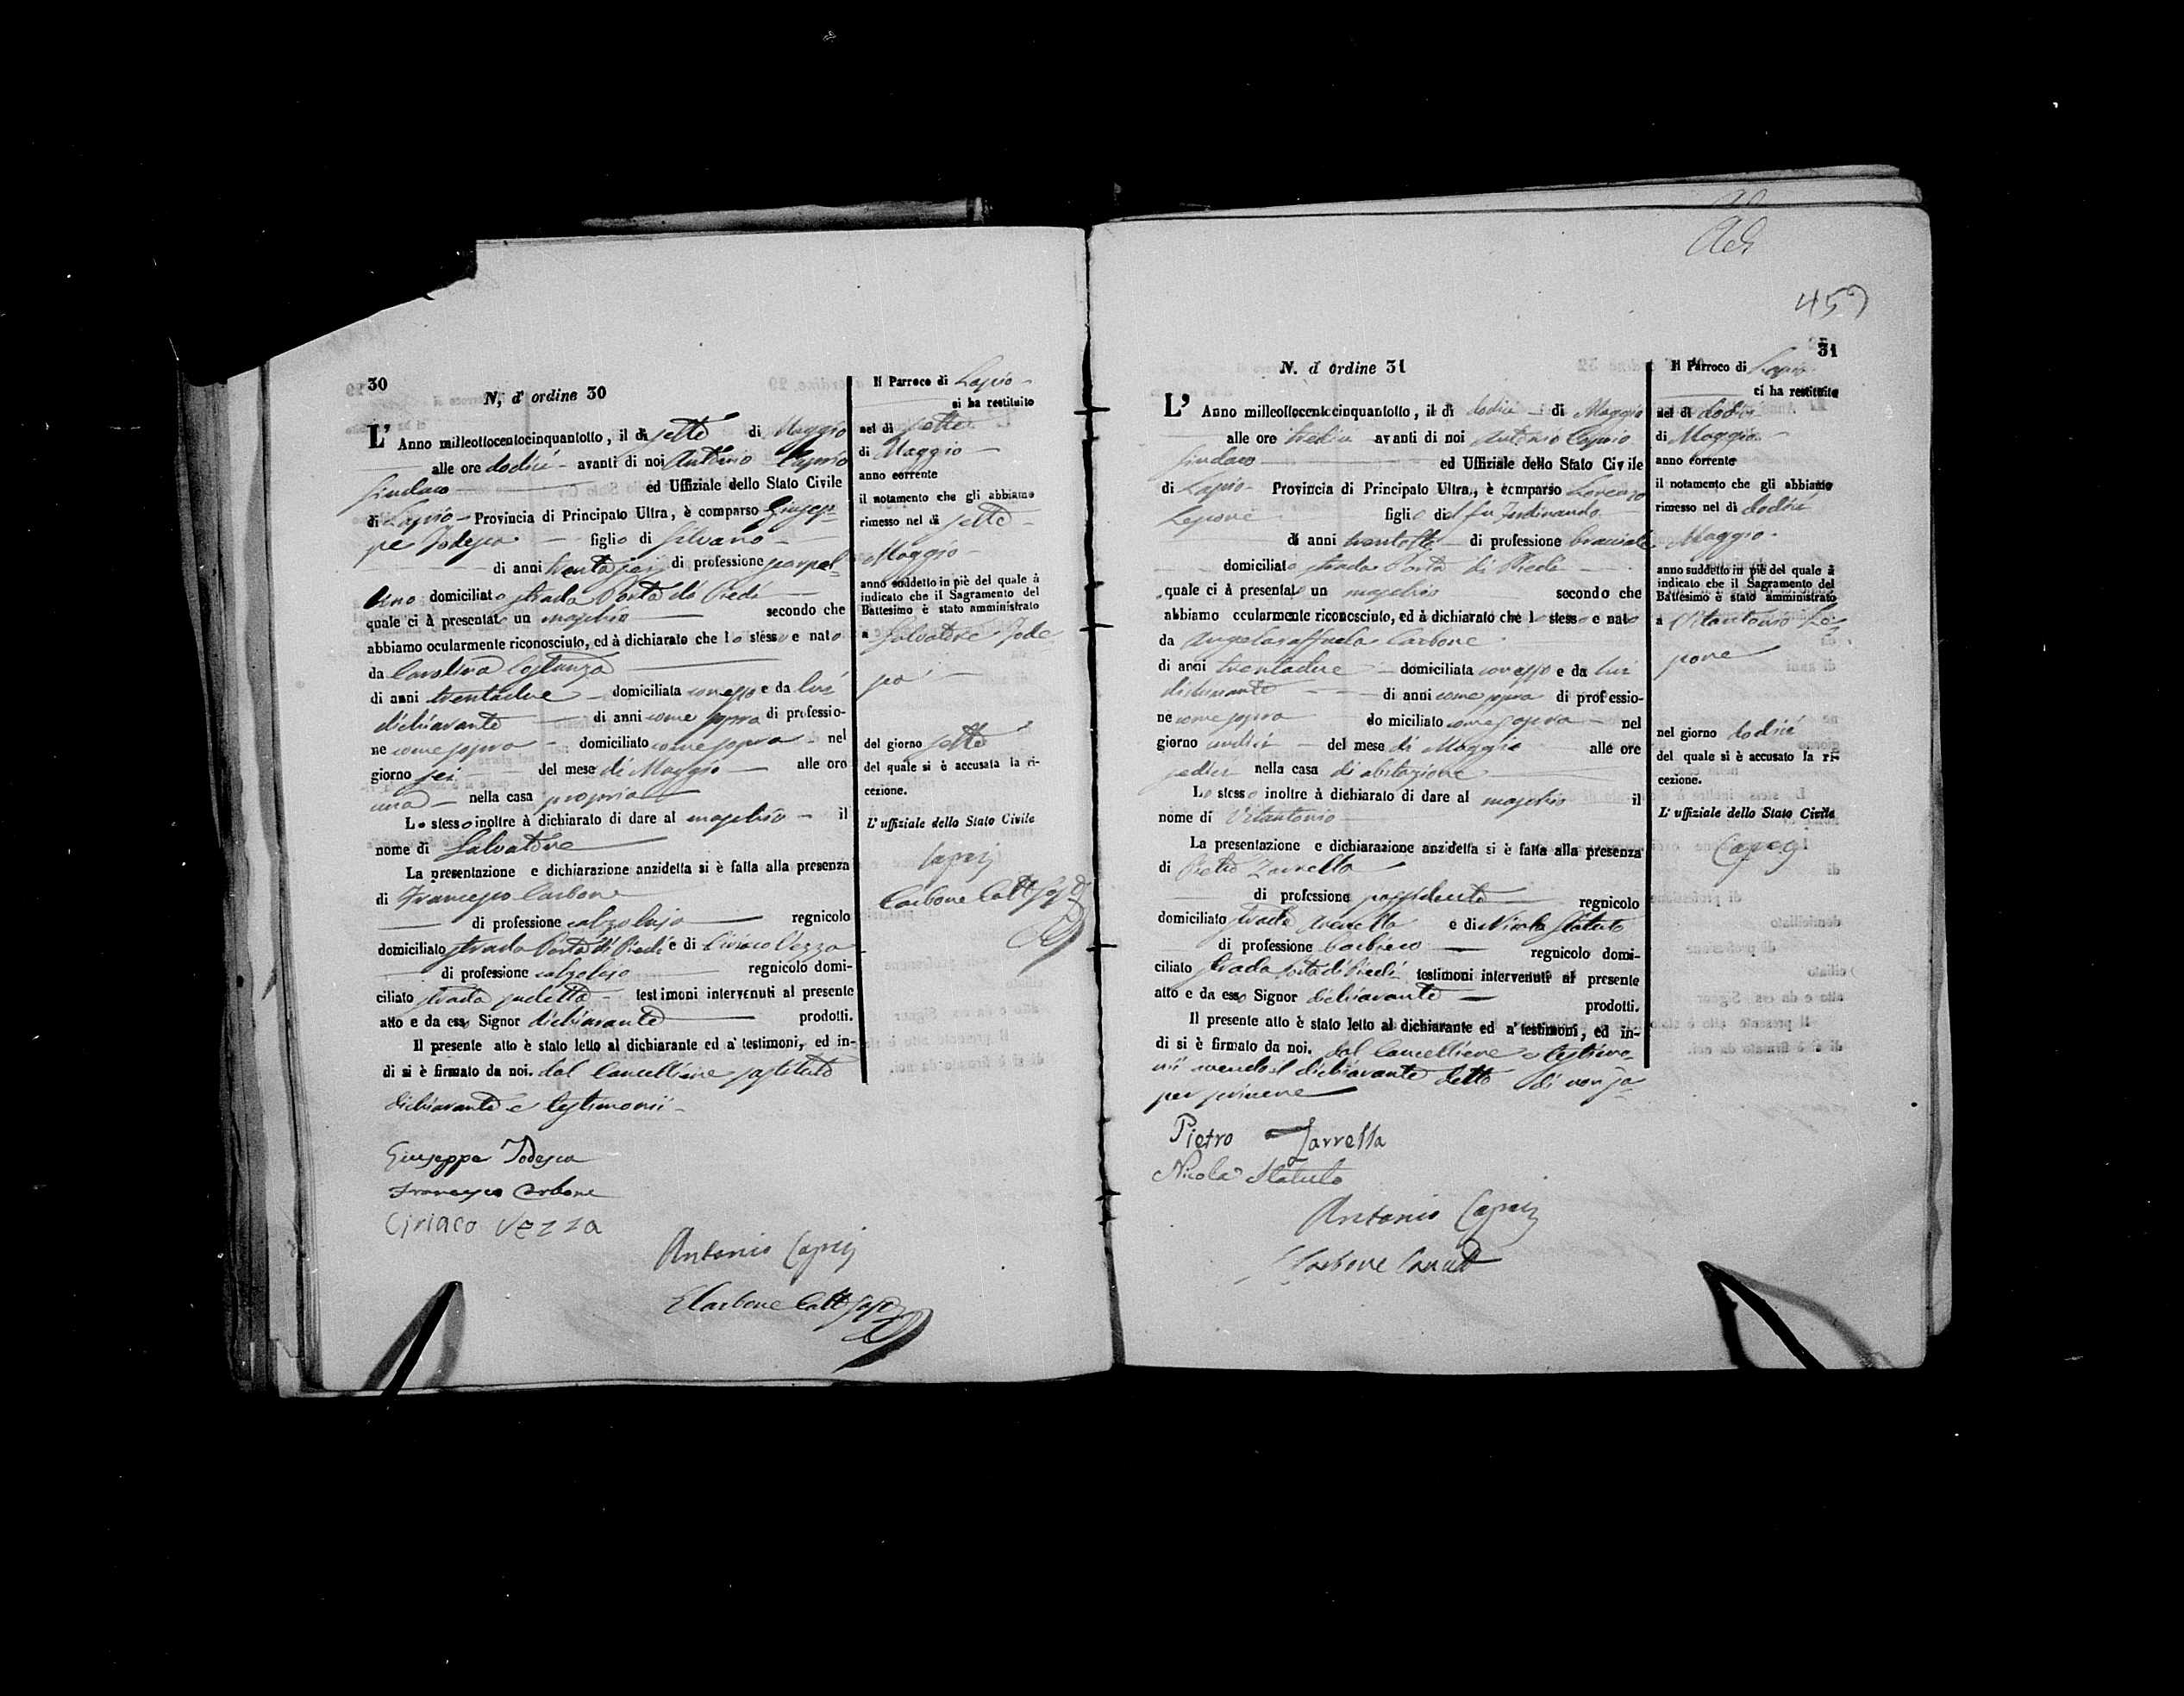 30
N, d' ordine 30
L' Anno milleottocentocinquantotto, il dì sette di Maggio
alle ore dodici - avanti di noi Antonio Caprio
Sindaco ed Uffiziale dello Stato Civile
di Lapio - Provincia di Principato Ultra, è comparso Giusep-
pe Todesca figlio di Silvano -
di anni trentasei di professione scarpel-
lino domiciliato strada Porta di Piedi
quale ci à presentato un maschio secondo che
abbiamo ocularmente riconosciuto, ed à dichiarato che lo stesso e nato
da Carolina Costanza
di anni trentadue - domiciliata con esso e da lui
dichiarante di anni come sopra di professio-
ne come sopra - domiciliato come sopra - nel
giorno sei del mese di Maggio alle ore
una - nella casa propria
Lo stesso inoltre à dichiarato di dare al maschio - il
nome di Salvatore
La presentazione e dichiarazione anzidetta si è fatta alla presenza
di Francesco Carbone
di professione calzolajo regnicolo
domiciliato strada Porta di Piedi e di Ciriaco Vezza
di professione calzolajo regnicolo domi-
ciliato strada testimoni intervenuti al presente
atto e da esso Signor dichiarante prodotti.
Il presente atto è stato letto al dichiarante ed a' testimoni, ed in-
di si è firmato da noi. dal Cancelliere sostituto
dichiarante e testimonii -
Giuseppe Todesca
Francesco Carbone
Ciriaco Vezza
Antonio Caprio
Carbone
Il Parroco di Lapio -
si ha restituito
nel dì sette
di Maggio -
anno corrente
il notamento che gli abbiamo
rimesso nel dì sette -
Maggio -
anno suddetto in piè del quale à
indicato che il Sagramento del
Battesimo è stato amministrato
a Salvatore Tode
sca
del giorno sette
del quale si è accusata la ri-
cezione.
L' uffiziale dello Stato Civile
Caprio
Carbone
459
31
N. d' ordine 31
L' Anno milleottocentocinquantotto, il dì dodici - di Maggio
alle ore tredici avanti di noi Antonio Caprio
Sindaco ed Uffiziale dello Stato Civile
di Lapio - Provincia di Principato Ultra, è comparso Lorenzo
Lepore figlio del fu Ferdinando
di anni trentotto di professione bracciale
domiciliato strada Porta di Piedi
quale ci à presentato un maschio secondo che
abbiamo ocularmente riconosciuto, ed à dichiarato che lo stesso e nato
da Angelaraffaela Carbone
di anni trentadue - domiciliata con esso e da lui
dichiarante di anni come sopra di professio-
ne come sopra domiciliato come sopra - nel
giorno undici - del mese di Maggio alle ore
sedici nella casa di abitazione
Lo stesso inoltre à dichiarato di dare al maschio il
nome di Vitantonio
La presentazione e dichiarazione anzidetta si è fatta alla presenza
di Pietro Zarrella
di professione possidente regnicolo
domiciliato strada e di Nicola Statuto
di professione barbiere regnicolo domi-
ciliato strada Porta di Piedi testimoni intervenuti al presente
atto e da esso Signor dichiarante prodotti.
Il presente atto è stato letto al dichiarante ed a' testimoni, ed in-
di si è firmato da noi. dal Cancelliere e testimo-
nii avendo il dichiarante detto di non sa-
per scrivere
Pietro Zarrella
Nicola Statuto
Antonio Caprio
Carbone
Il Parroco di Lapio
ci ha restituito
nel dì dodici
di Maggio -
anno corrente
il notamento che gli abbiamo
rimesso nel dì dodici
Maggio -
anno suddetto in piè del quale à
indicato che il Sagramento del
Battesimo è stato amministrato
a Vitantonio Le
pore
nel giorno dodici
del quale si è accusato la ri-
cezione.
L' uffiziale dello Stato Civile
Caprio